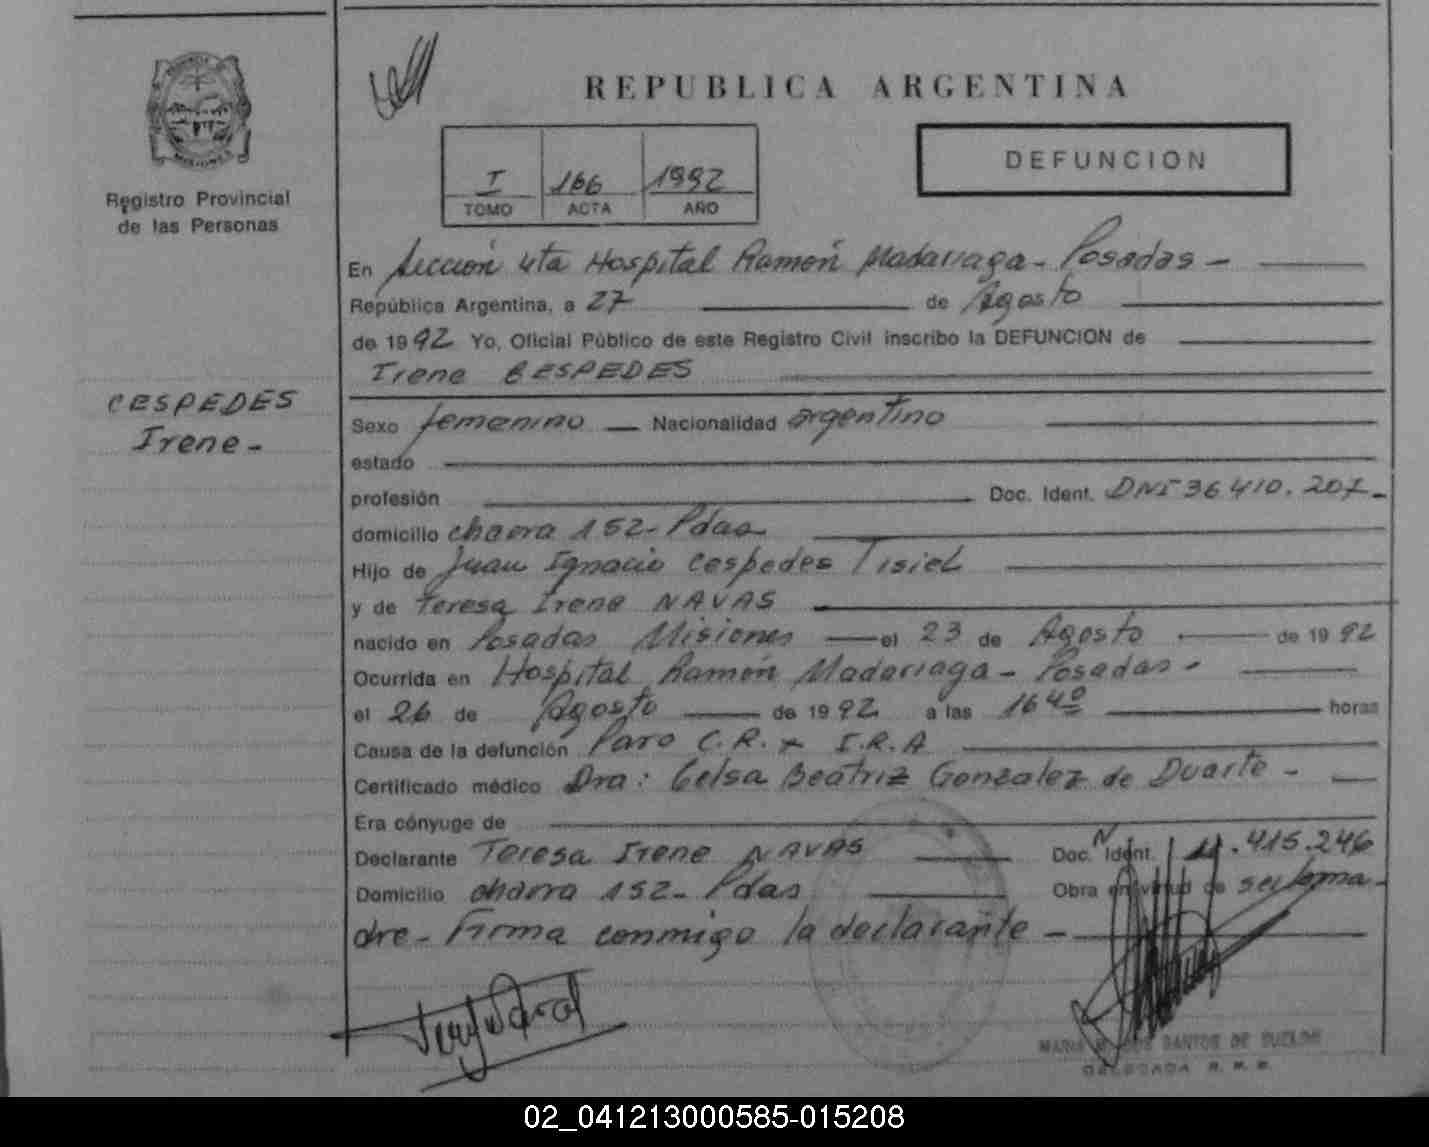 MISIONES
Registro Provincial
de las Personas
CESPEDES
Irene -
REPUBLICA ARGENTINA
I 166 1992
TOMO ACTA AÑO
DEFUNCION
En Sección 4ta Hospital Ramón Madariaga - Posadas -
República Argentina, a 27 de Agosto
de 1992 Yo, Oficial Público de este Registro Civil inscribo la DEFUNCION de
Irene CESPEDES
Sexo femenino Nacionalidad argentino
estado
profesión Doc. Ident. DNI 36.410.207.-
domicilio chacra 152 - Pdas
Hijo de Juan Ignacio Cespedes Tisiel
y de Teresa Irene NAVAS
nacido en Posadas Misiones el 23 de Agosto de 1992
Ocurrida en Hospital Ramón Madariaga - Posadas -
el 26 de Agosto de 1992 a las 16 40 horas
Causa de la defunción Paro C.R. x I.R.A
Certificado médico Dra: Celsa Beatriz Gonzalez de Duarte -
Era cónyuge de
Declarante Teresa Irene NAVAS Doc. Ident. 11.415.246
Domicilio chacra 152 - Pdas Obra en virtud de ser la ma-
dre - Firma conmigo la declarante -
SANTOS DE
DELEGADA
02_041213000585-015208